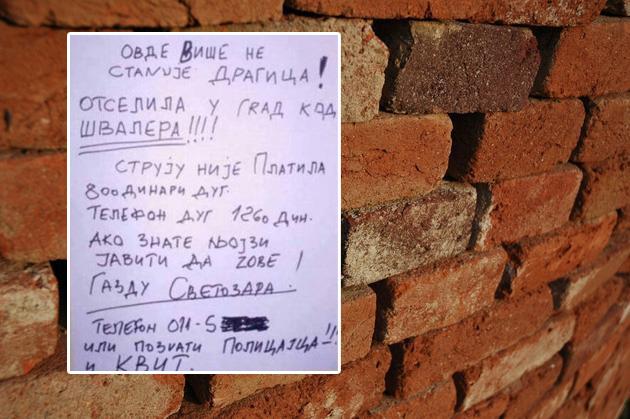 ОВДЕ ВИШЕ НЕ
СТАНУЈЕ ДРАГИЦА!
ОТСЕЛИЛА У ГRАД КОД
ШВАЛЕРА!!!!
СТРУЈУ НИЈЕ ПЛАТИЛА
800 ДИНАРИ ДУГ.
ТЕЛЕФОН ДУГ 1260 ДИН.
АКО ЗНАТЕ ЊОЈЗИ
ЈАВИТИ ДА ZОВЕ!
ГАЗДУ СВЕТОЗАРА.
ТЕЛЕФОН 011-5
ИЛИ ПОЗVАТИ ПОЛИЦАЈЦА!!!
И КВИТ.